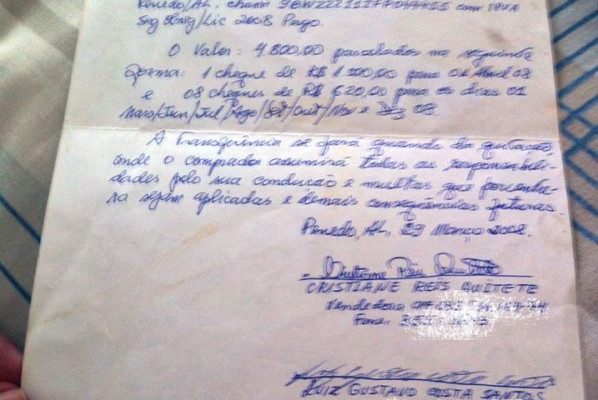 Penedo/AL, chassi com IPVA
Seg Obrig/Lic 2008 Pago.
O Valor: 4.800,00 parcelados na seguinte
forma: 1 cheque de R$ 1.000,00 para 01 Abril 08
e 08 cheques de R$ 620,00 para os dias 01
Maio/Jun/Jul/Ago/Set/Out/Nov e Dez 08.
A transferência se fará quando da quitação,
onde o comprador assumirá todas as responsabili-
dades pela sua condução e multas que porventu-
ra sejam aplicadas e demais consequências futuras.
Penedo, AL, 29 Março 2008.
CRISTIANE REIS QUITETE
Vendedora CPF
Fone:
LUIZ GUSTAVO COSTA SANTOS